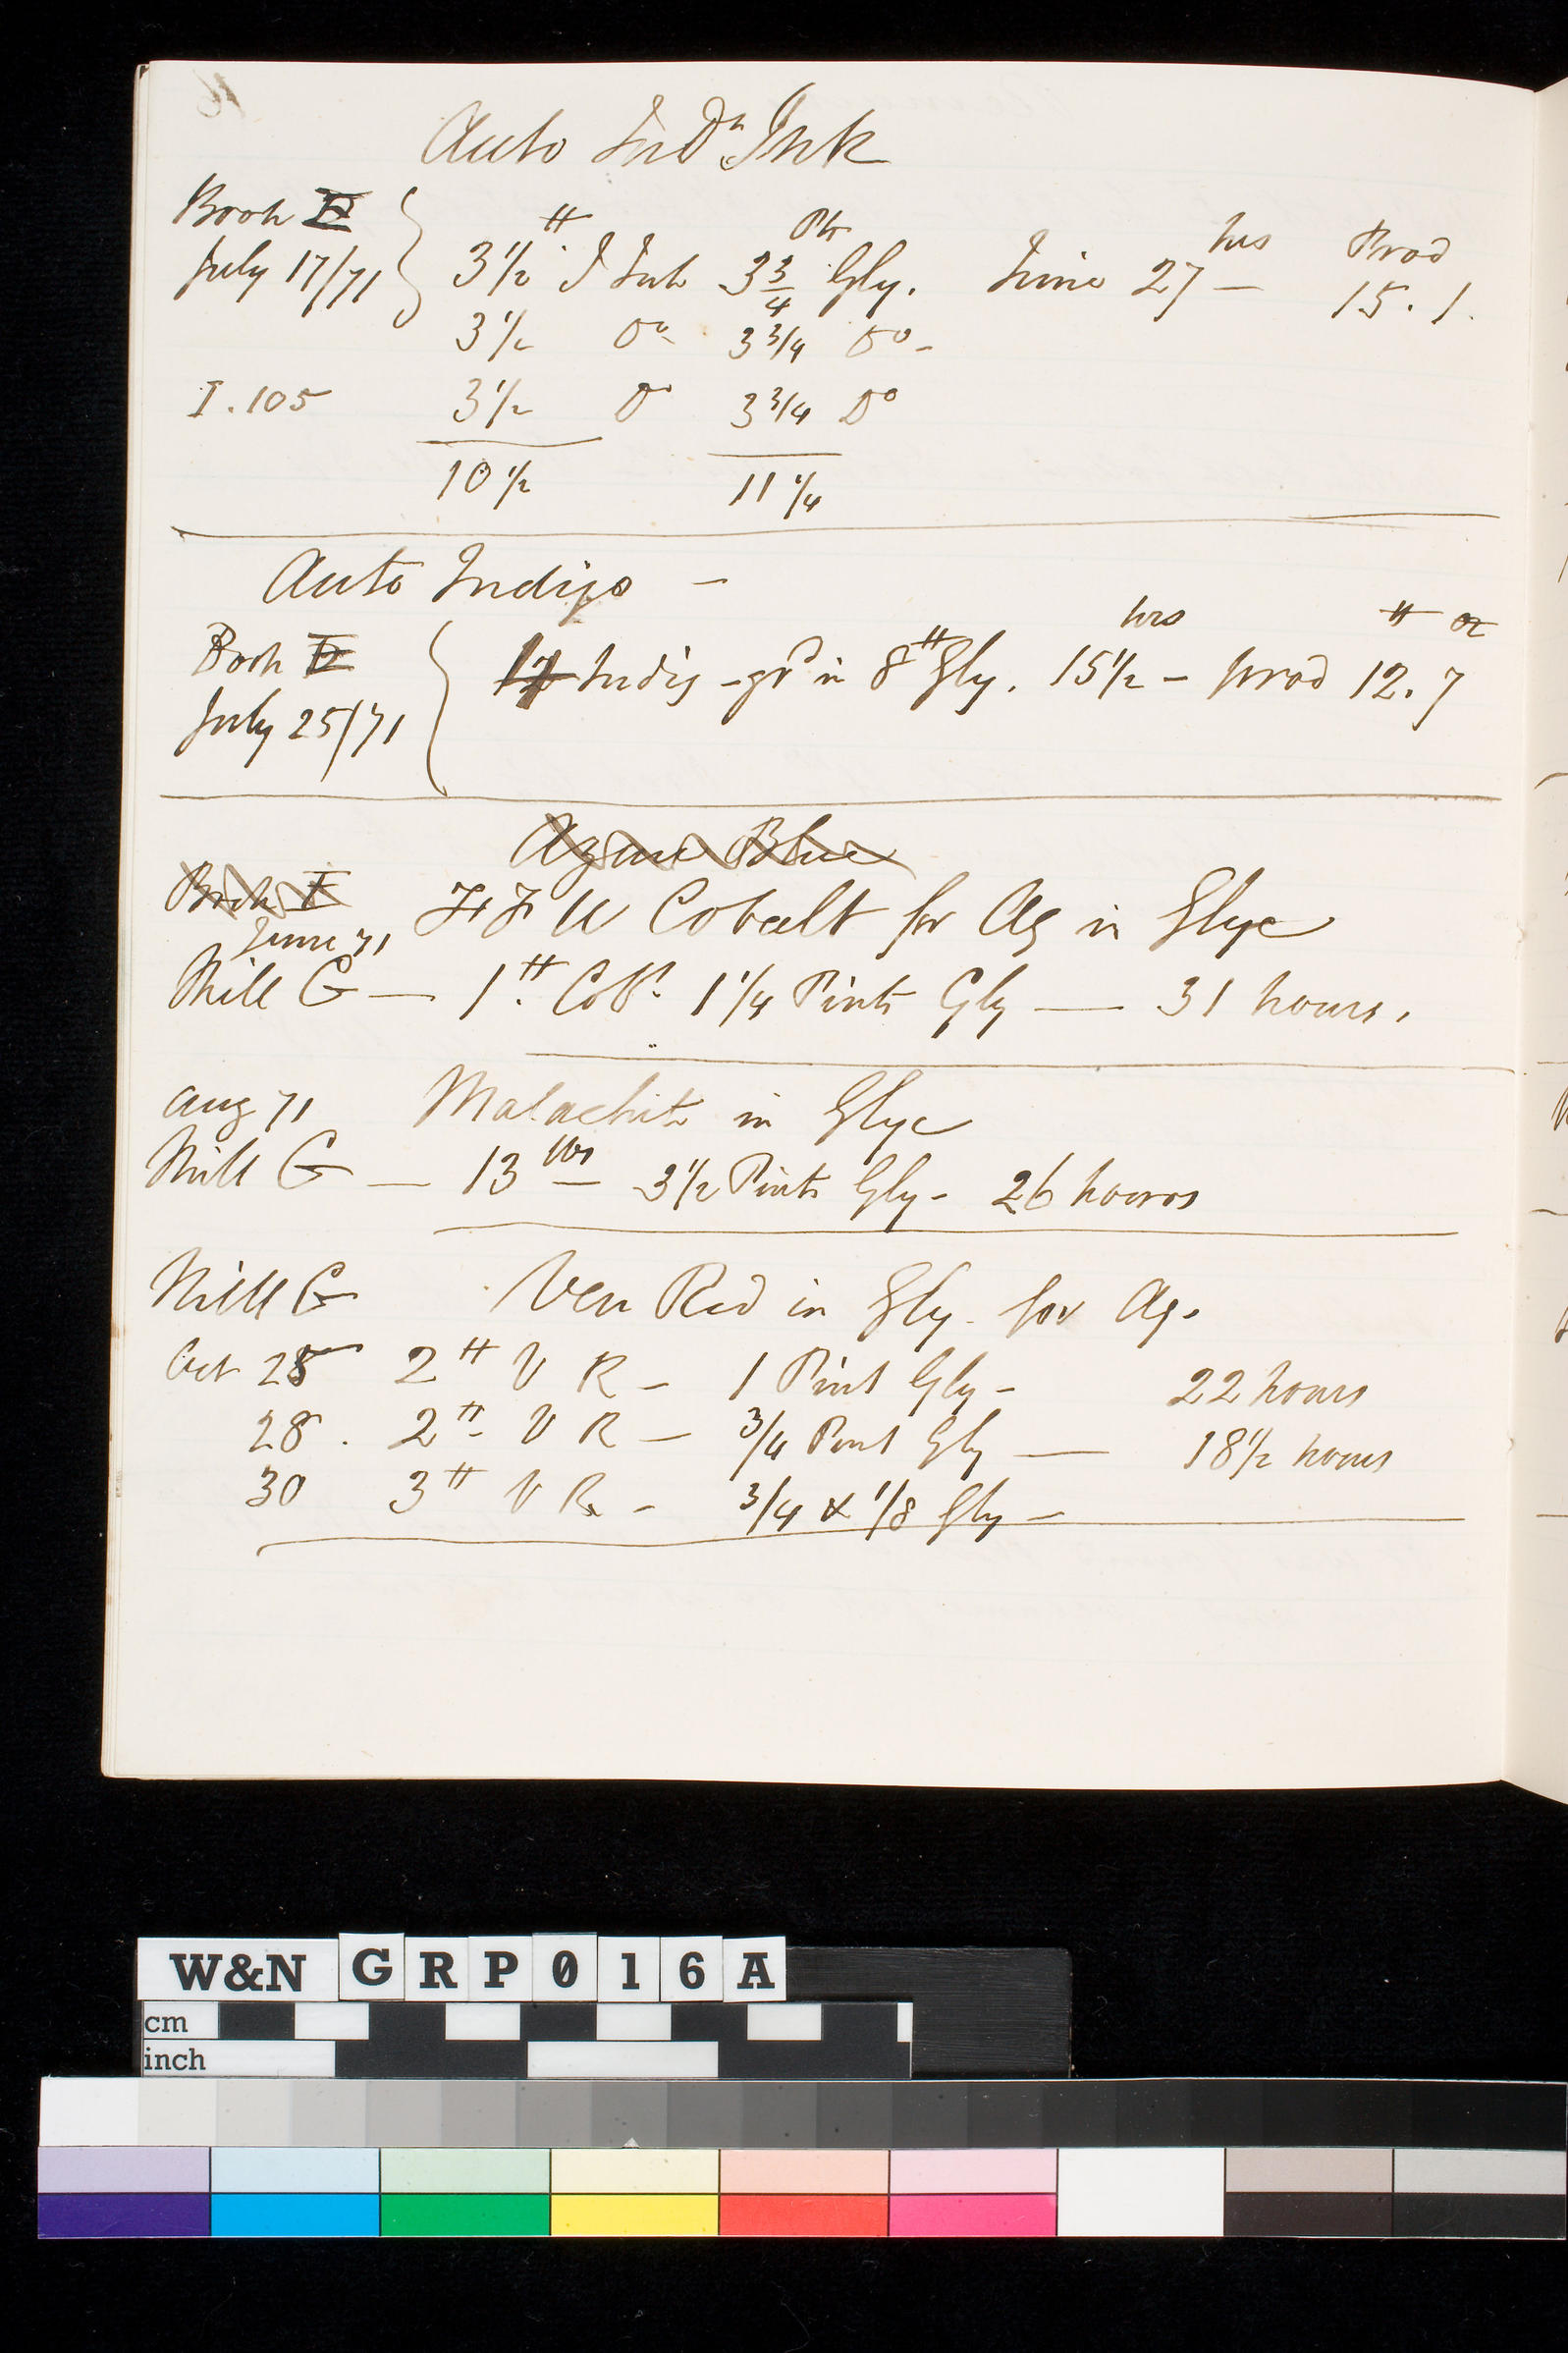 16
Auto Indn Ink
Book II
July 17/71 3 1/2 # I Ink 3 3/4 Pts Gly. Time 27 hrs Prod 15.1.
3 1/2 Do 3 3/4 Do -
I.105 3 1/2 Do 3 3/4 Do
10 1/2 11 1/4
Auto Indigo -
Book II
July 25/71 Indig - grd in 8 # Gly. 15 1/2 hrs - prod 12 # . 7 oz
Azure Blue
Book I
FFW Cobalt for Ag in Glyc
June 71
Mill G — 1 # Cobt. 1 1/4 Pints Gly — 31 hours.
Aug 71 Malachite in Glyc
Mill G — 13 lbs — 3 1/2 Pints Gly - 26 hours
Mill G Ven Red in Gly. for Ag.
Oct 25 2 # V R - 1 Pint Gly - 22 hours
28. 2 # V R — 3/4 Pint Gly — 18 1/2 hours
30 3 # V R - 3/4 & 1/8 Gly —
W&N GRP016A
cm
inch